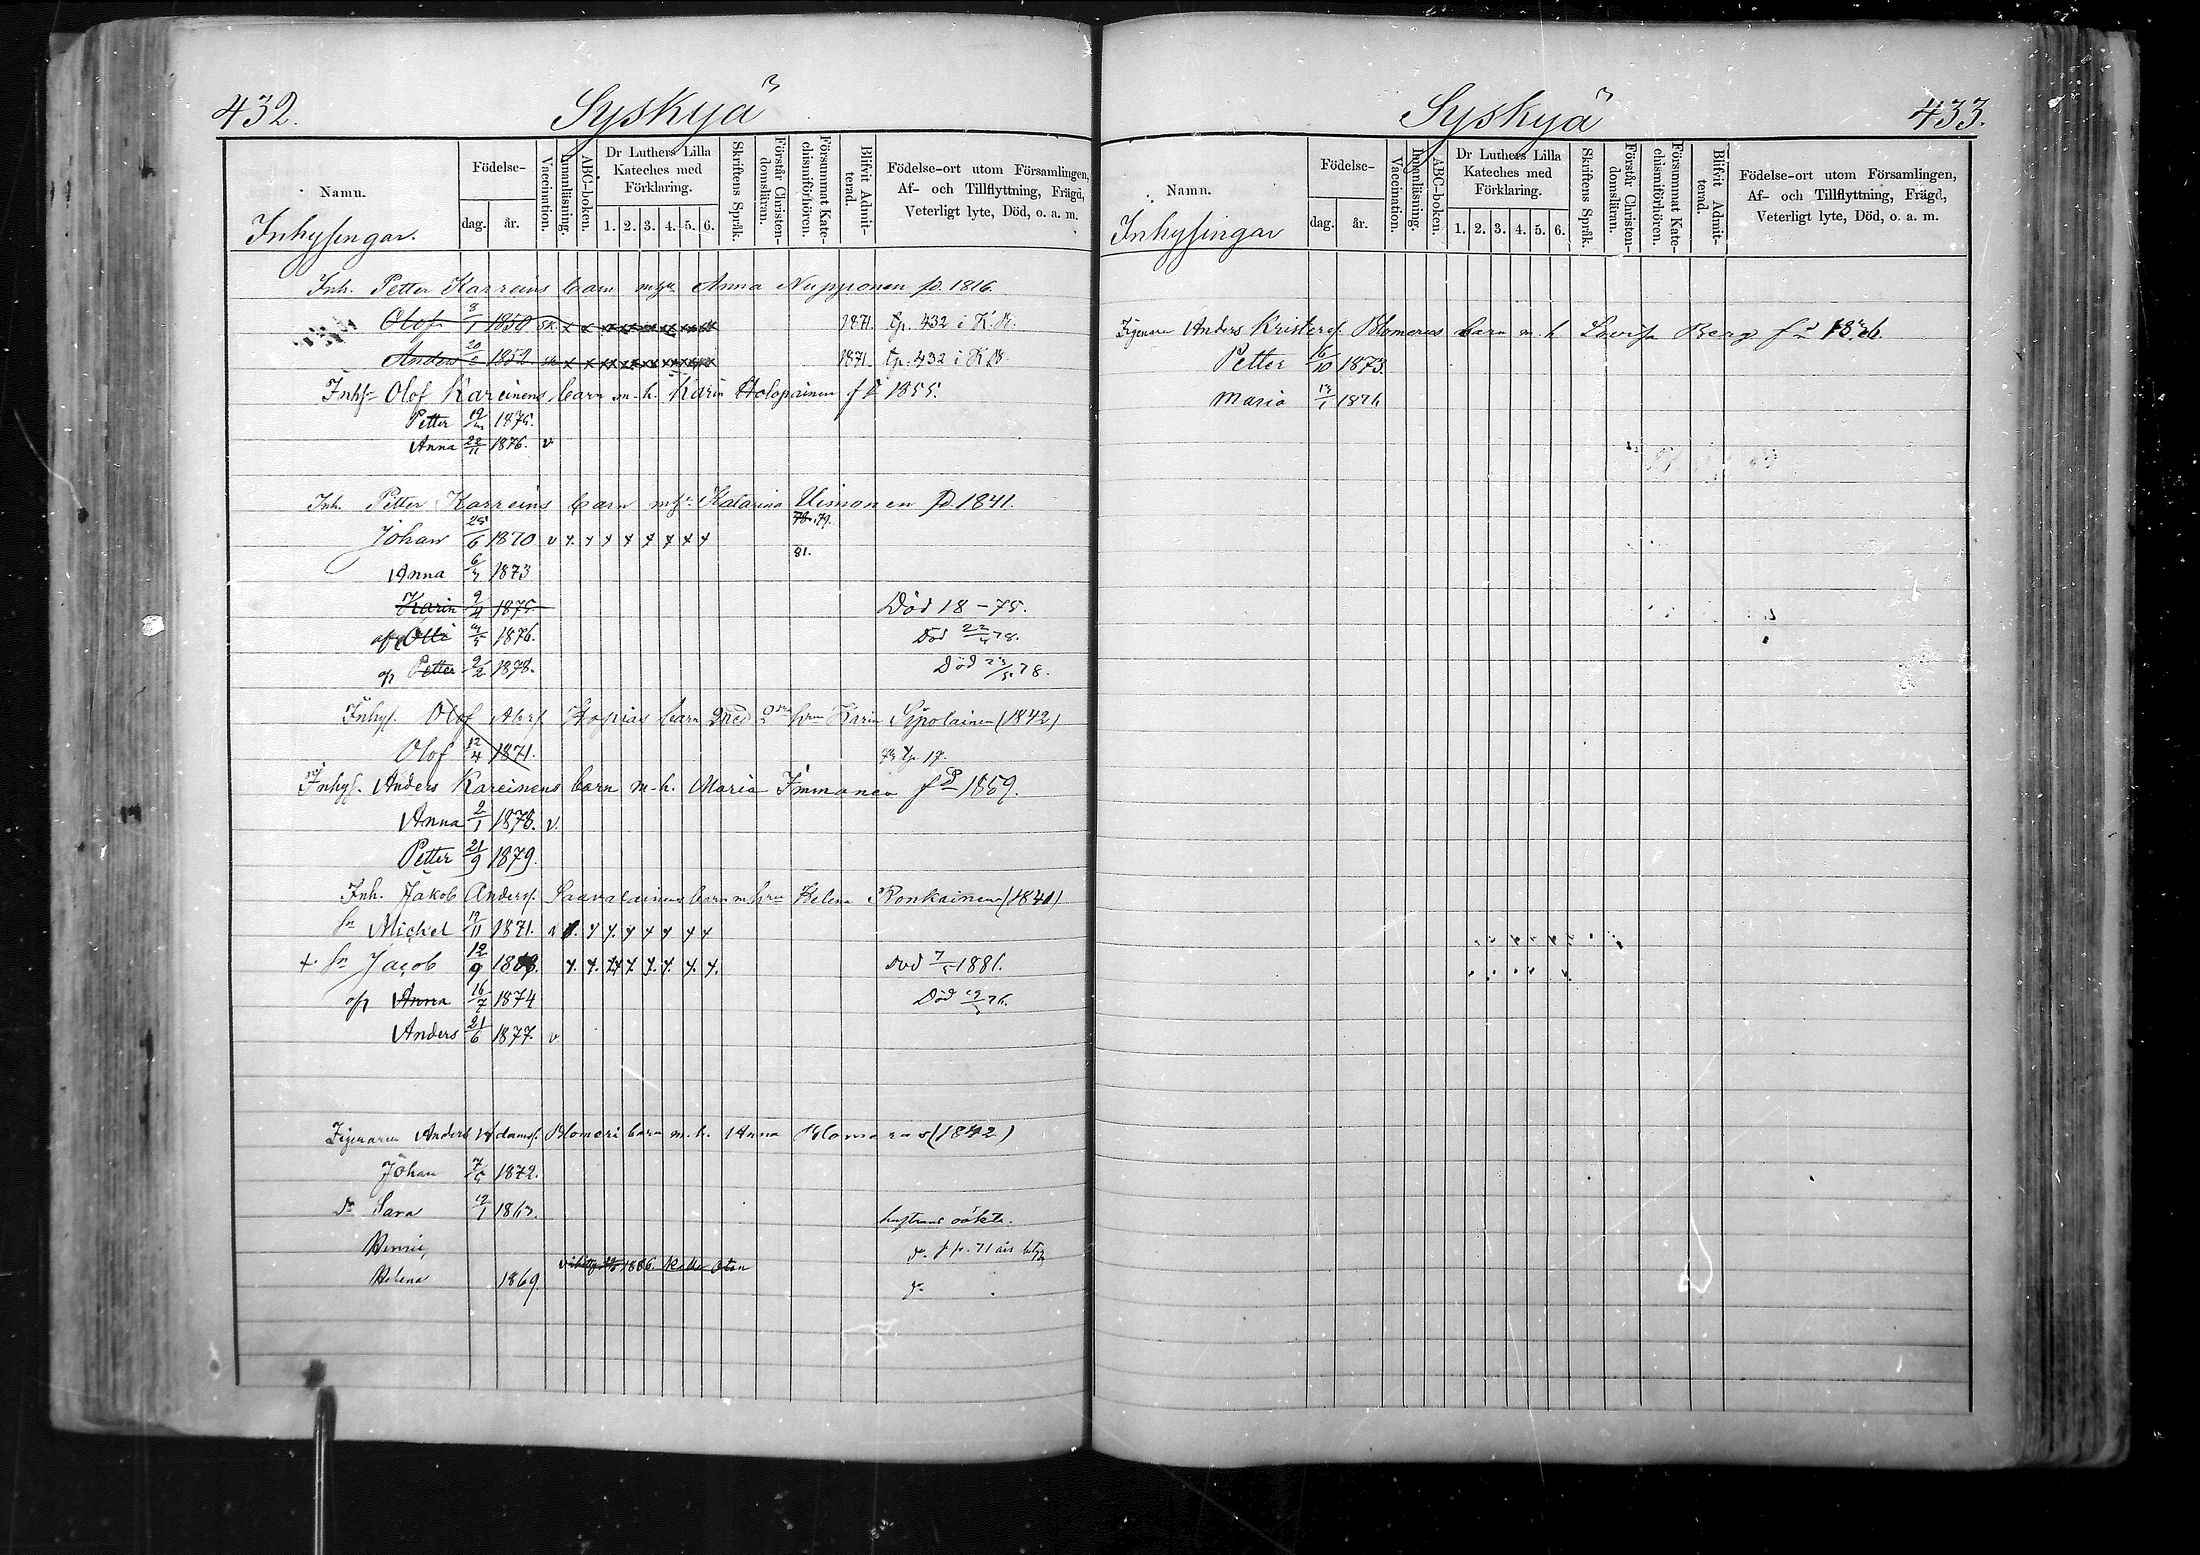 432.
Syskyä
Namn.
Födelse-
dag.
år.
Vaccination.
Innanläsning.
ABC-boken.
Dr Luthers Lilla
Kateches med
Förklaring.
1. 2. 3. 4. 5. 6.
Skriftens Språk.
Förstår Christen-
domsläran.
Försummat Kate-
chismiförhören.
Blifvit Admit-
terad.
Födelse-ort utom Församlingen,
Af- och Tillflyttning, Frägd,
Veterligt lyte, Död, o. a. m.
Inhysingar.
Inh. Petter Karreins barn Anna Nupponen fd. 1816.
Olof 1850 x x x x x x x x 1871. tp. 432 i K.B.
Anders 1852. x x x x x x x x 1871. tp. 432 i K.B.
Inhs Olof Kareinens barn m. h. Karin Holopainen fd 1855.
Petter 1875.
Anna 22/11 1876. v
Inh. Petter Karreins barn Katarina Uimonen fd. 1841.
79.
Johan 25/6 1870 v x x x x x x x x
81.
Anna 1873
Karin 1875. Död 18 - 75.
Olli 1876. Död 22/4 78.
Petter 2/2 1878. Död 78.
Inhys. Olof Abrs. barn med hrun Karin Sipolainen (1842)
Olof 12/4 1871. tp. 17.
Inhys. Anders Kareinens barn m. h. Maria Immonen fd 1859.
Anna 2/1 1878. v.
Petter 21/9 1879.
Inh. Jakob Anders. Saavalainens barn m hrun Helena Ronkainen (1840)
sn Mickel 1871. x x x x x x x
+ sn Jacob 12/9 x x x x x x x Död 1881.
Anna 16/7 1874 Död 76.
Anders 21/6 1877. v
Zigenaren Anders Adams. Blomeri barn m. h. Anna Blomerus (1842)
Johan 1872.
dr Sara 1863. hustruns oäkta.
Henric,
Helena 1869. do
433.
Syskyä
Namn.
Födelse-
dag.
år.
Vaccination.
Innanläsning.
ABC-boken.
Dr Luthers Lilla
Kateches med
Förklaring.
1. 2. 3. 4. 5. 6.
Skriftens Språk.
Förstår Christen-
domsläran.
Försummat Kate-
chismiförhören.
Blifvit Admit-
terad.
Födelse-ort utom Församlingen,
Af- och Tillflyttning, Frägd,
Veterligt lyte, Död, o. a. m.
Inhysingar
Zigenaren Anders Kristers. Blomerus barn m. h. Lovisa Berg fd
Petter 16/10 1873.
Maria 1876